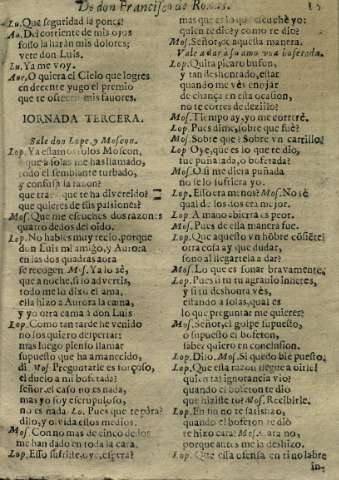 De don Francisco de Rojas.
Lu. Que seguridad la pones?
Au. Del corriente de mis ojos
fosso la harán mis dolores;
vete don Luis.
Lu. Ya me voy.
Aur. O quiera el Cielo que logres
en decente yugo el premio
que te ofrecen mis fauores.
IORNADA TERCERA.
Sale don Lope, y Moscon.
Lop. Ya estamos solos Moscon,
que a solas me has llamado,
todo el semblante turbado,
y confusa la razon
que te ha diuertido?
que quieres de sus passiones?
Mos. Que me escuches dos razones
quatro dedos del oìdo.
Lop. No hables muy recio, porque
don Luis mi amigo, y Aurora
en las dos quadras aora
se recogen. Mos. Ya lo sè,
que anoche, si lo aduertis,
todo me lo dixo el ama,
ella hizo a Aurora la cama,
y yo otra cama à don Luis
Lop. Como tan tarde he venido
no los quiero despertar:
mas luego pienso llamar
supuesto que ha amanecido,
di. Mos. Preguntarle es forçoso,
el duelo a mi bofetada?
señor, el caso no es nada,
mas yo soy escrupuloso,
no es nada Lo. Pues que te
dilo, y oluida essos medios.
Mos. Con no mas de cinco dedos
me han dado en toda la cara.
Lop. Esso sufriste, oye, espera?
mas que es lo que escuchè yo:
quien te dio? y como te dio?
Mos. Señor, de aquesta manera.
Vale a dar a su amo vna bofetada.
Lop. Quita picaro bufon,
y tan deshonrado, estar
quando me vès enojar
de chança en esta ocasion,
no te corres de dezillo?
Mos. Tiempo ay, yo me correrè.
Lop. Pues dime, sobre que fuè?
Mos. Sobre que? Sobre vn carrillo.
Lop. Oye, que es lo que te dio,
fue puñalada, o bofetada?
Mos. O si me diera puñada
no se lo sufriera yo.
Lop. Essotra es menos? Mos. No sè
qual de los dos era mejor.
Lop. A mano abierta es peor.
Mos. Pues de essa manera fue.
Lop. Que aquesto vn hombre cõsiete!
otra cosa ay que dudar,
sonò al llegartela a dar?
Mos. Lo que es sonar brauamente.
Lop. Pues si tu tu agrauio infieres,
y si tu deshonra vès,
estando a solas, qual es
lo que preguntar me quieres?
Mos. Señor, el golpe supuesto,
o supuesto el bofeton,
saber quiero en conclusion.
Lop. Dilo. Mos. Si quedo bie puesto.
Lop. Que esta razon llegue a oirle!
quien tal ignorancia vio?
quando el boferon te dio
que hiziste tu? Mos. Recibirle.
Lop. En fin no te satisfizo,
quando el bofeton te dio
te hizo cara? Mos. Cara no,
porque antes me la deshizo.
Lop. Que essa ofensa en ti no labre
in-